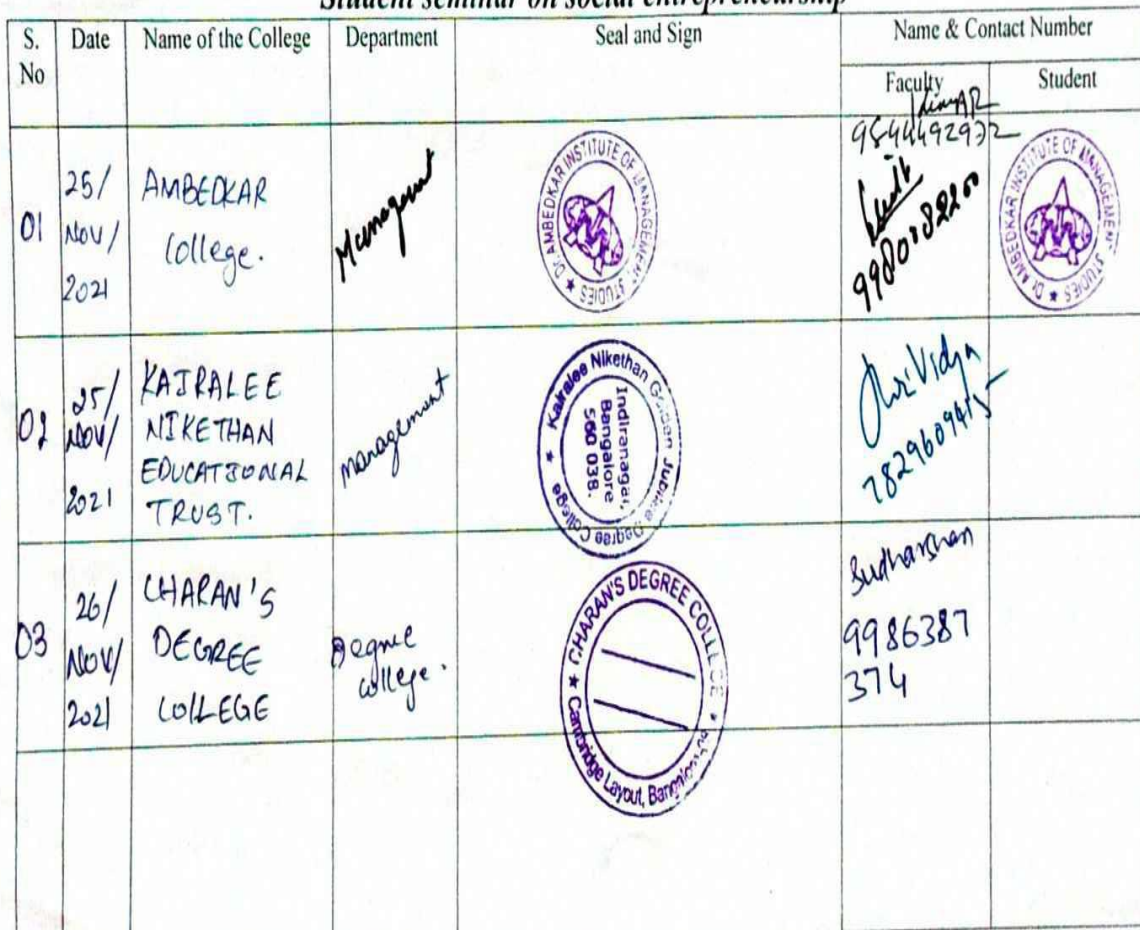 Student seminar on social entrepreneurship
S. No
Date
Name of the College
Department
Seal and Sign
Name & Contact Number
Faculty
Student
01
25/
Nov/
2021
AMBEDKAR
College.
Management
Dr. AMBEDKAR INSTITUTE OF MANAGEMENT STUDIES
9980082200
Dr. AMBEDKAR INSTITUTE OF MANAGEMENT STUDIES
02
25/
Nov/
2021
KAIRALEE
NIKETHAN
EDUCATIONAL
TRUST.
Management
Kairalee Nikethan Golden Jubilee Degree College
Indiranagar,
Bangalore
560 038.
Vidya
7829609415
03
26/
Nov/
2021
CHARAN'S
DEGREE
COLLEGE
Degree
College.
CHARAN'S DEGREE COLLEGE
Cambridge Layout, Bangalore
Sudharshan
9986387
374